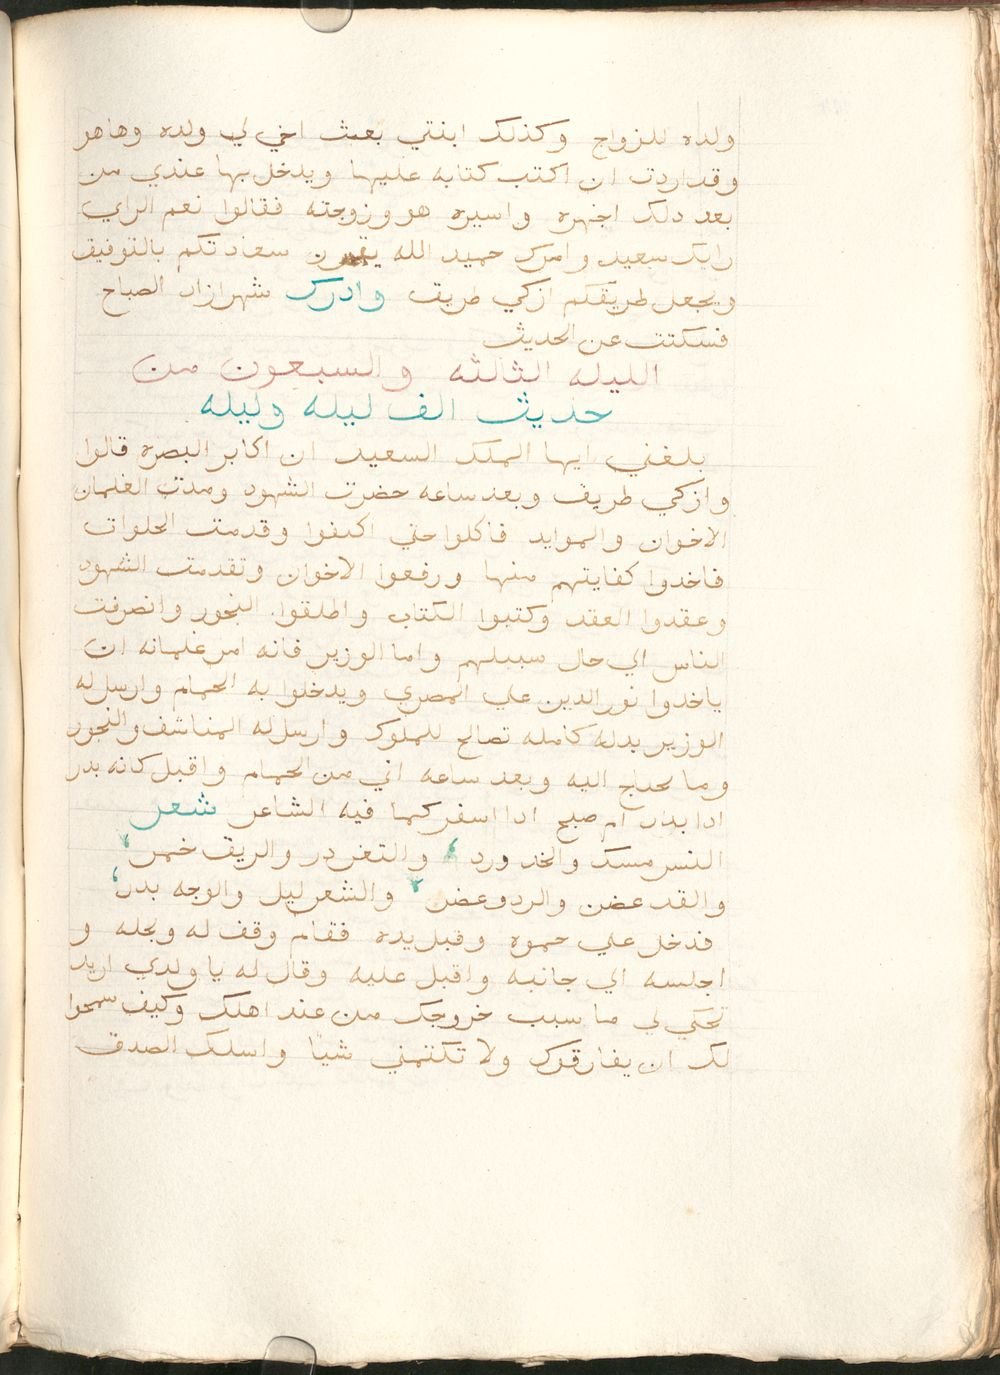 ولده للزواج وكذلك ابنتي بعث اخي لي ولده وهاهو
وقد اردت ان اكتب كتابه عليها ويدخل بها عندي من
بعد دلك اجهزه واسيره هو وزوجته فقالوا نعم الراي
رايك سعيد وامرك حميد الله يقرن سعادتكم بالتوفيق
ويجعل طريقكم ازكي طريق وادرك شهرازاد الصباح
فسكتت عن الحديث
الليله الثالثه والسبعون من
حديث الف ليله وليله
بلغني ايها الملك السعيد ان اكابر البصره قالوا
وازكي طريق وبعد ساعه حضرت الشهود ومدت الغلمان
الاخوان والموايد فاكلوا حتي اكتفوا وقدمت الحلوات
فاخدوا كفايتهم منها ورفعوا الاخوان وتقدمت الشهود
وعقدوا العقد وكتبوا الكتاب واطلقوا البخور وانصرفت
الناس الي حال سبيلهم واما الوزير فانه امر غلمانه ان
ياخدوا نور الدين علي المصري ويدخلوا به الحمام وارسل له
الوزير بدله كامله تصالح للملوك وارسل له المناشف والبخور
وما يحتاج اليه وبعد ساعه اتي من الحمام واقبل كانه بدر
ادا بدر ام صبح ادا اسفر كما فيه الشاعر شعر
النسر مسك والخد ورد والتغر در والريق خمر
والقد غضن والردو غضن والشعر ليل والوجه بدر
فدخل علي حموه وقبل يده فقام وقف له وبجله و
اجلسه الي جانبه واقبل عليه وقال له يا ولدي اريد
تحكي لي ما سبب خروجك من عند اهلك وكيف سمحوا
لك ان يفارقوك ولا تكتمني شيا واسلك الصدق